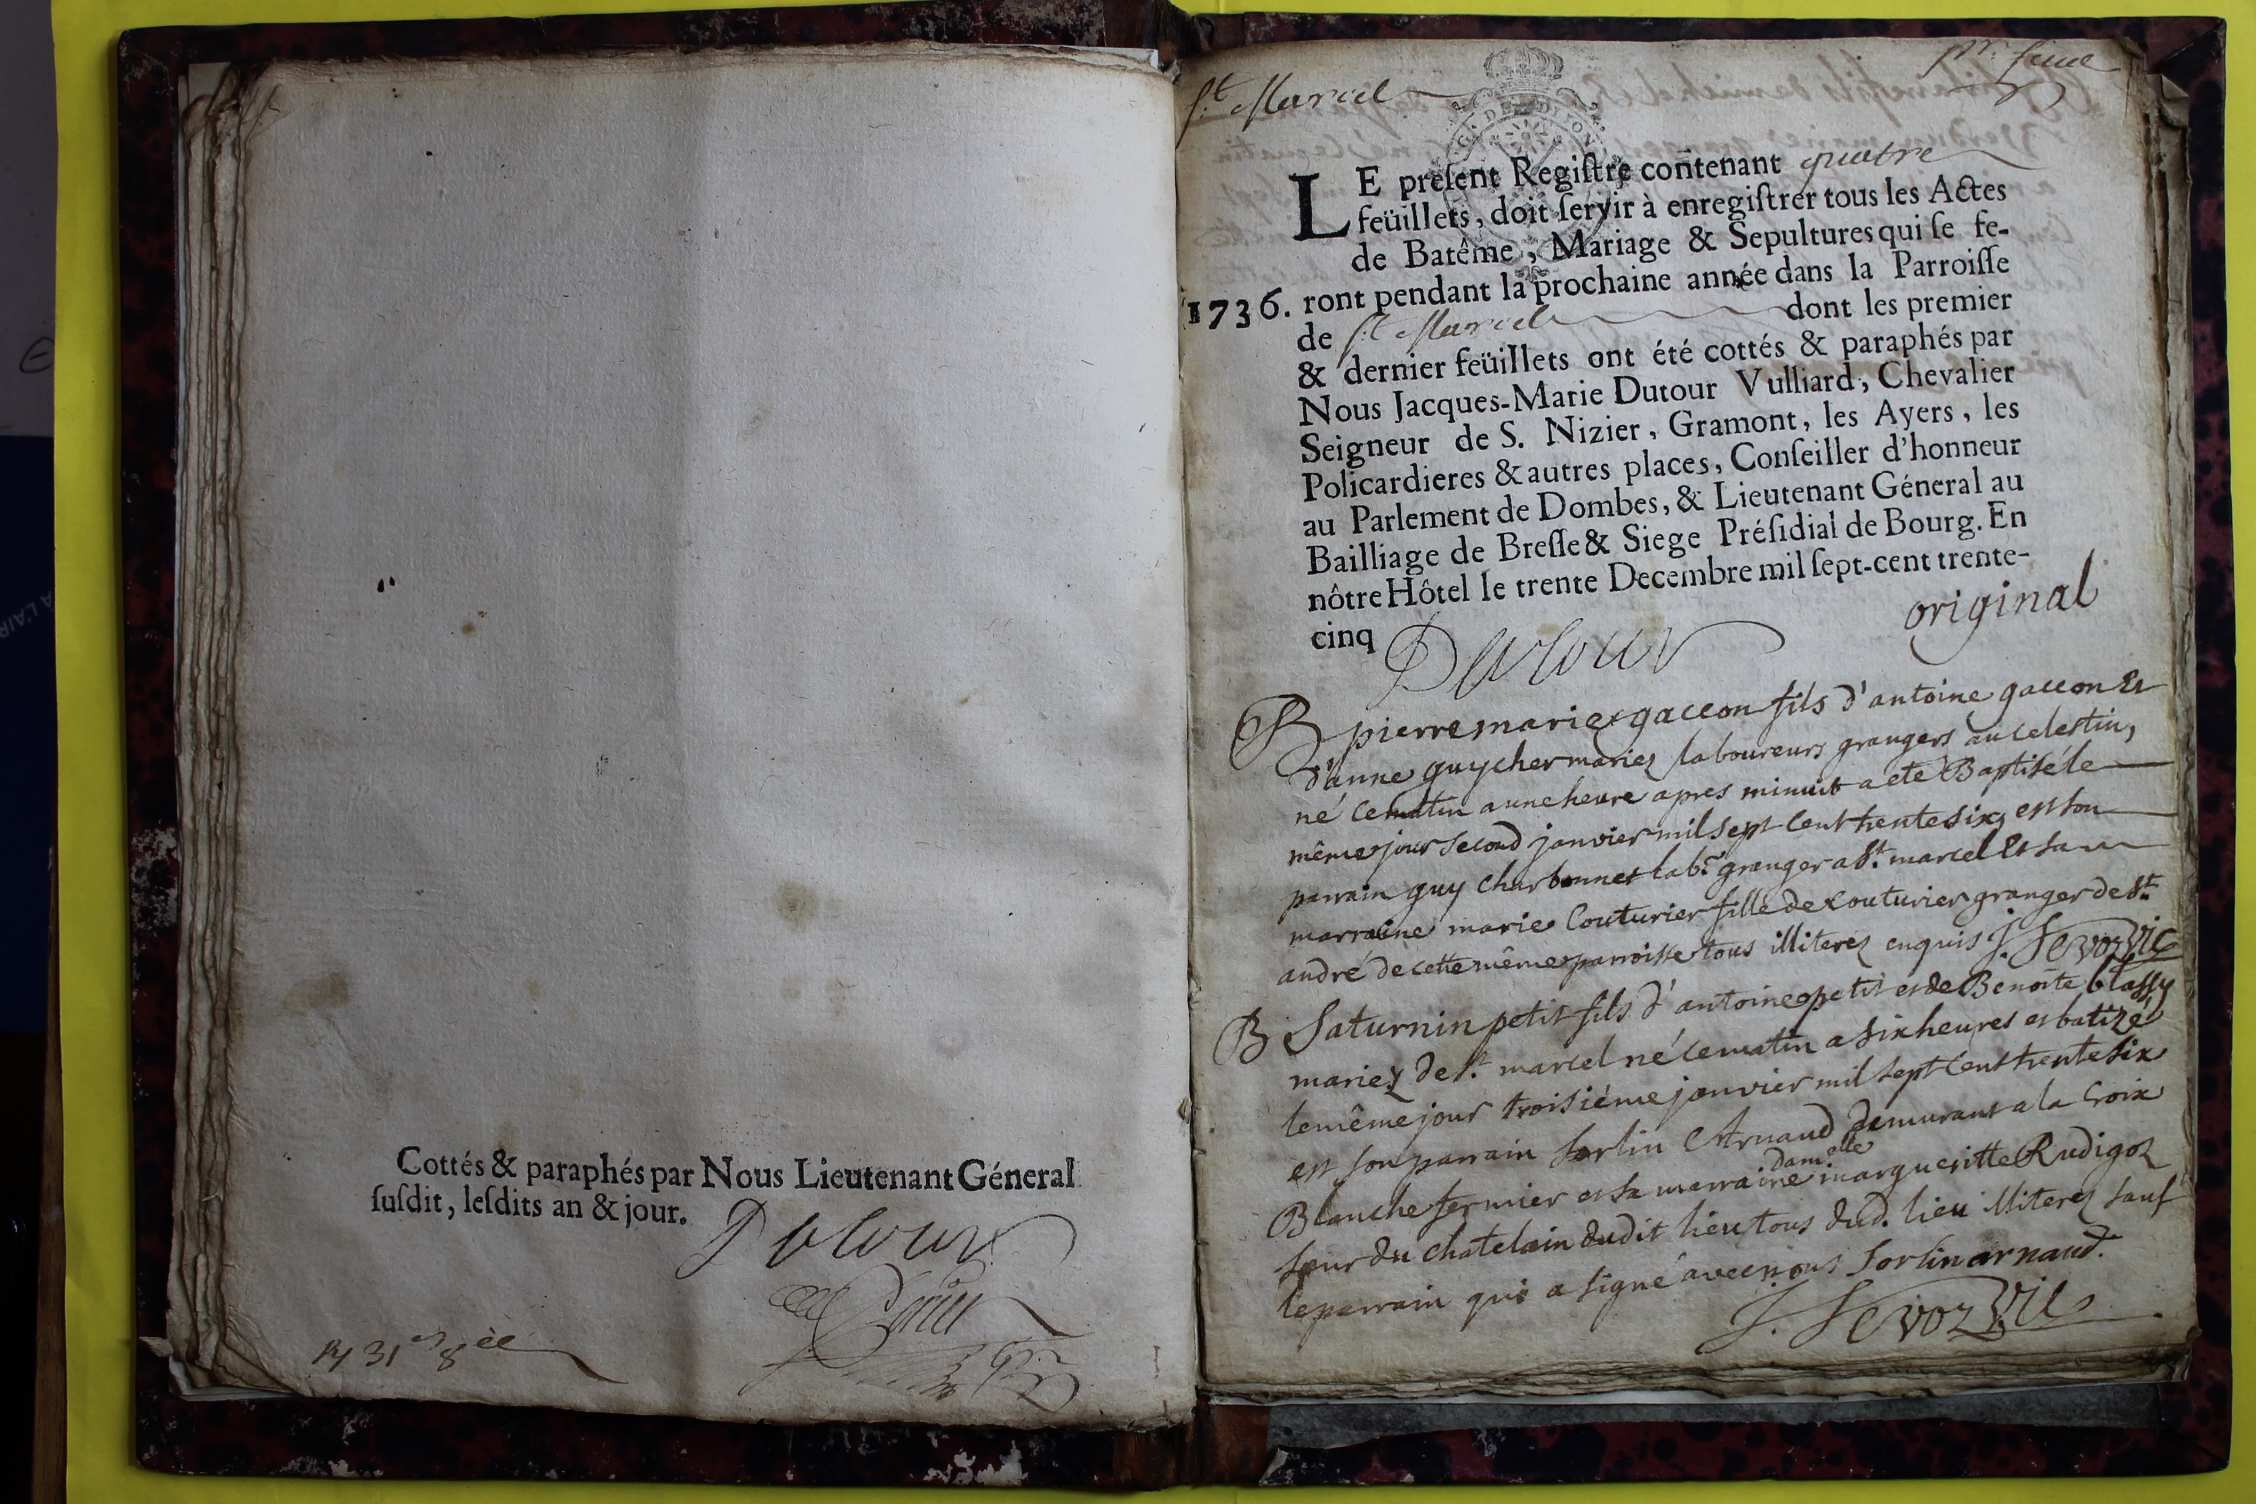 Cottés & paraphés par Nous Lieutenant Géneral
ſuſdit, leſdits an & jour.
Dutour
31
St. Marcel
pr. feuille
G. DE DIJON
LE preſent Regiſtre contenant quatre
feüillets, doit ſervir à enregiſtrer tous les Actes
de Batême, Mariage & Sepultures qui ſe fe-
1736. ront pendant la prochaine année dans la Parroiſſe
de St. Marcel dont les premier
& dernier feüillets ont été cottés & paraphés par
Nous Jacques-Marie Dutour Vulliard, Chevalier
Seigneur de S. Nizier, Gramont, les Ayers, les
Policardieres & autres places, Conſeiller d'honneur
au Parlement de Dombes, & Lieutenant Géneral au
Bailliage de Breſſe & Siege Préſidial de Bourg. En
nôtre Hôtel le trente Decembre mil ſept-cent trente-
cinq
Dutour
original
B pierre marie gaccon fils d'antoine gaccon Et
d'anne guycher mariez laboureurs grangers au celestin,
né ce matin a une heure apres minuit a eté Baptisé le
même jour second janvier mil sept cent trente six, est son
parrain guy charbonnet labr. granger a St. marcel Et sa
marraine marie Couturier fille de couturier granger de St.
andré de cette même parroisse tous illiterez enquis J. Sevoz Vic
B Saturnin petit fils d'antoine petit et de Benoîte blassy
mariez de St. marcel né ce matin a six heures et batizé
le même jour troisiéme janvier mil sept cent trente six
est son parrain sorlin Arnaud demurant a la Croix
Blanche fermier et sa marraine damelle margueritte Rudigoz
sœur du chatelain dudit lieu tous dud. lieu illiterez sauf
le parrain qui a signé avec nous Sorlin arnaud.
J. Sevoz Vic